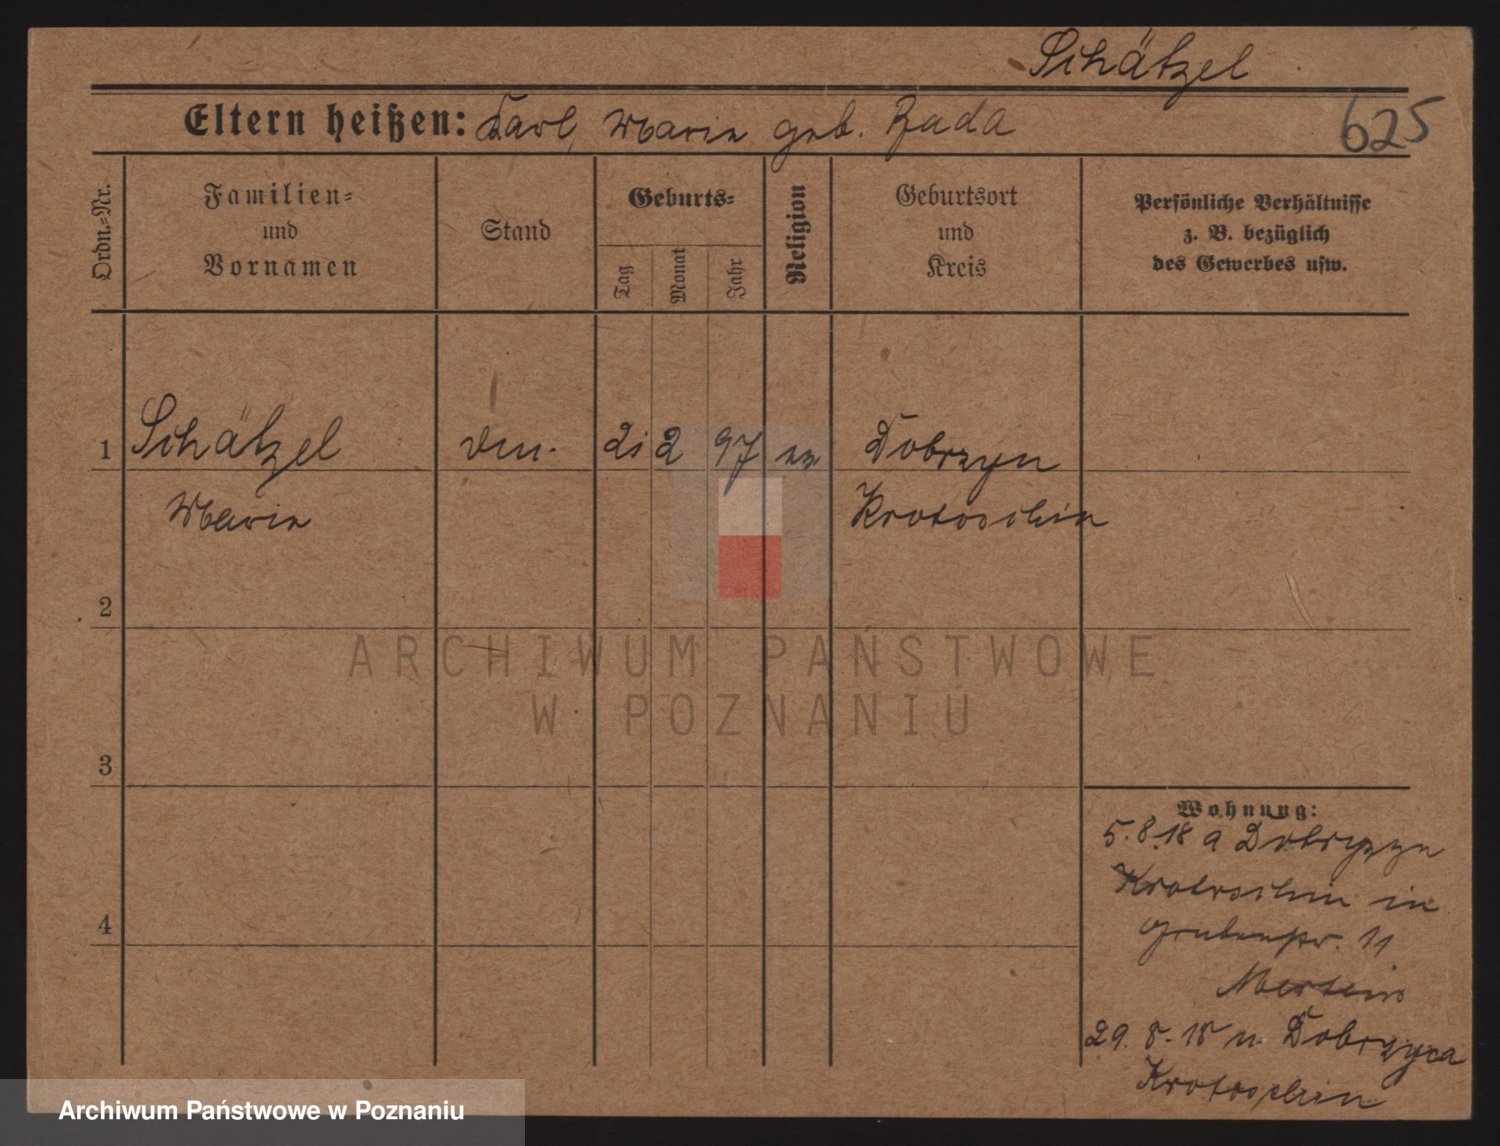 Schätzel
Eltern heißen: Karl, Marie geb. Zada
625
Ordn.-Nr.
Familien-
und
Vornamen
Stand
Geburts-
Tag
Monat
Jahr
Religion
Geburtsort
und
Kreis
Persönliche Verhältnisse
z. B. bezüglich
des Gewerbes usw.
1 Schätzel 21 2 97 Dobrzyn
Marie Krotoschin
2
3
4
Wohnung:
5.8.18 a
Krotoschin in
Grubenstr. 11
Mertens
29. 8. 18 n. Dobrzyca
Krotoschin
ARCHIWUM PAŃSTWOWE
W POZNANIU
Archiwum Państwowe w Poznaniu